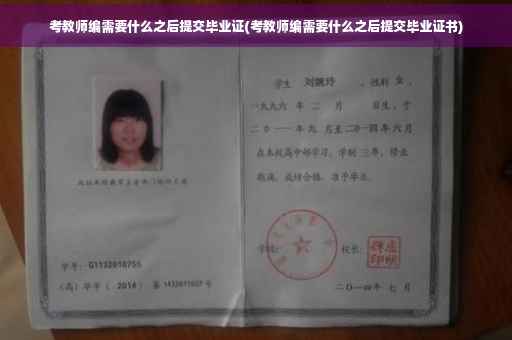 考教师编需要什么之后提交毕业证(考教师编需要什么之后提交毕业证书)
学生 刘婉玲 ，性别 女 ，
一九九六 年 二 月 日生，于
二〇一一年九 月至二〇一四年六月
在本校高中部学习，学制 三年，修业
期满，成绩合格，准予毕业。
学号：G1132010755
(高) 毕字 ( 2014 ) 第 1432011007 号
学校：
校长：
二〇一四年 七 月